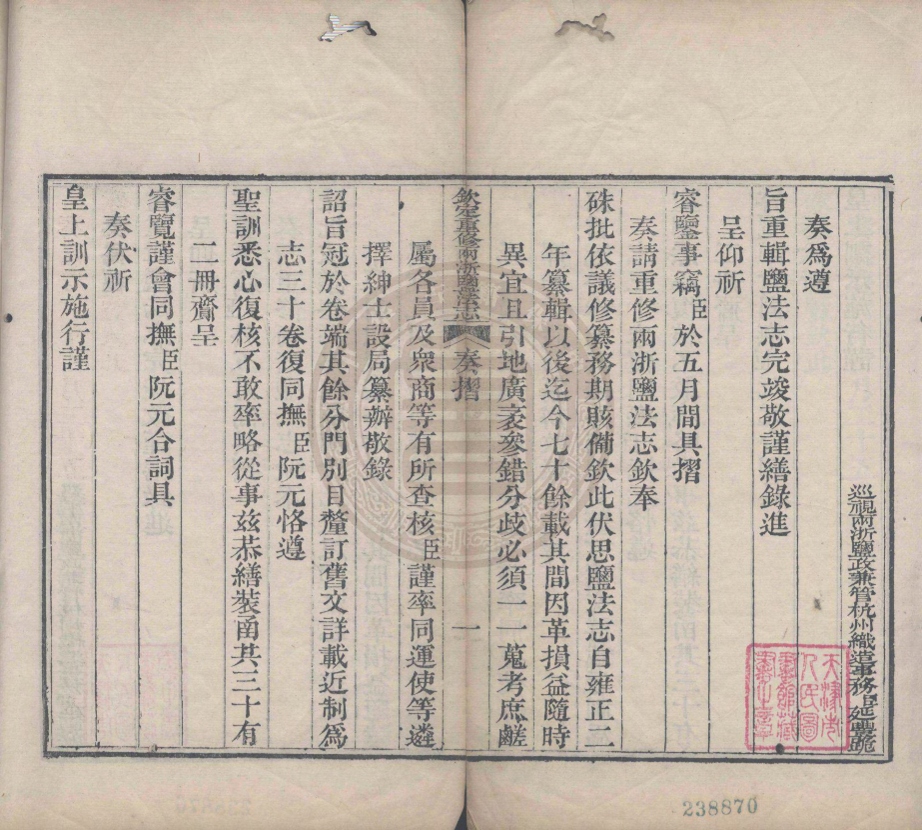 巡視兩浙鹽政兼管杭州織造事務臣延豐跪
奏爲遵
旨重輯鹽法志完竣敬謹繕錄進
呈仰祈
睿鑒事竊臣於五月間具摺
奏請重修兩浙鹽法志欽奉
硃批依議修纂務期賅備欽此伏思鹽法志自雍正二
年纂輯以後迄今七十餘載其間因革損益隨時
異宜且引地廣袤參錯分歧必須一一蒐考庶鹺
欽定重修兩浙鹽法志 奏摺 一
屬各員及衆商等有所查核臣謹率同運使等遴
擇紳士設局纂辦敬錄
詔旨冠於卷端其餘分門別目釐訂舊文詳載近制爲
志三十卷復同撫臣阮元恪遵
聖訓悉心復核不敢率略從事茲恭繕裝函共三十有
二冊齎呈
睿覽謹會同撫臣阮元合詞具
奏伏祈
皇上訓示施行謹
天津市
人民圖
書館藏
書之章
238870